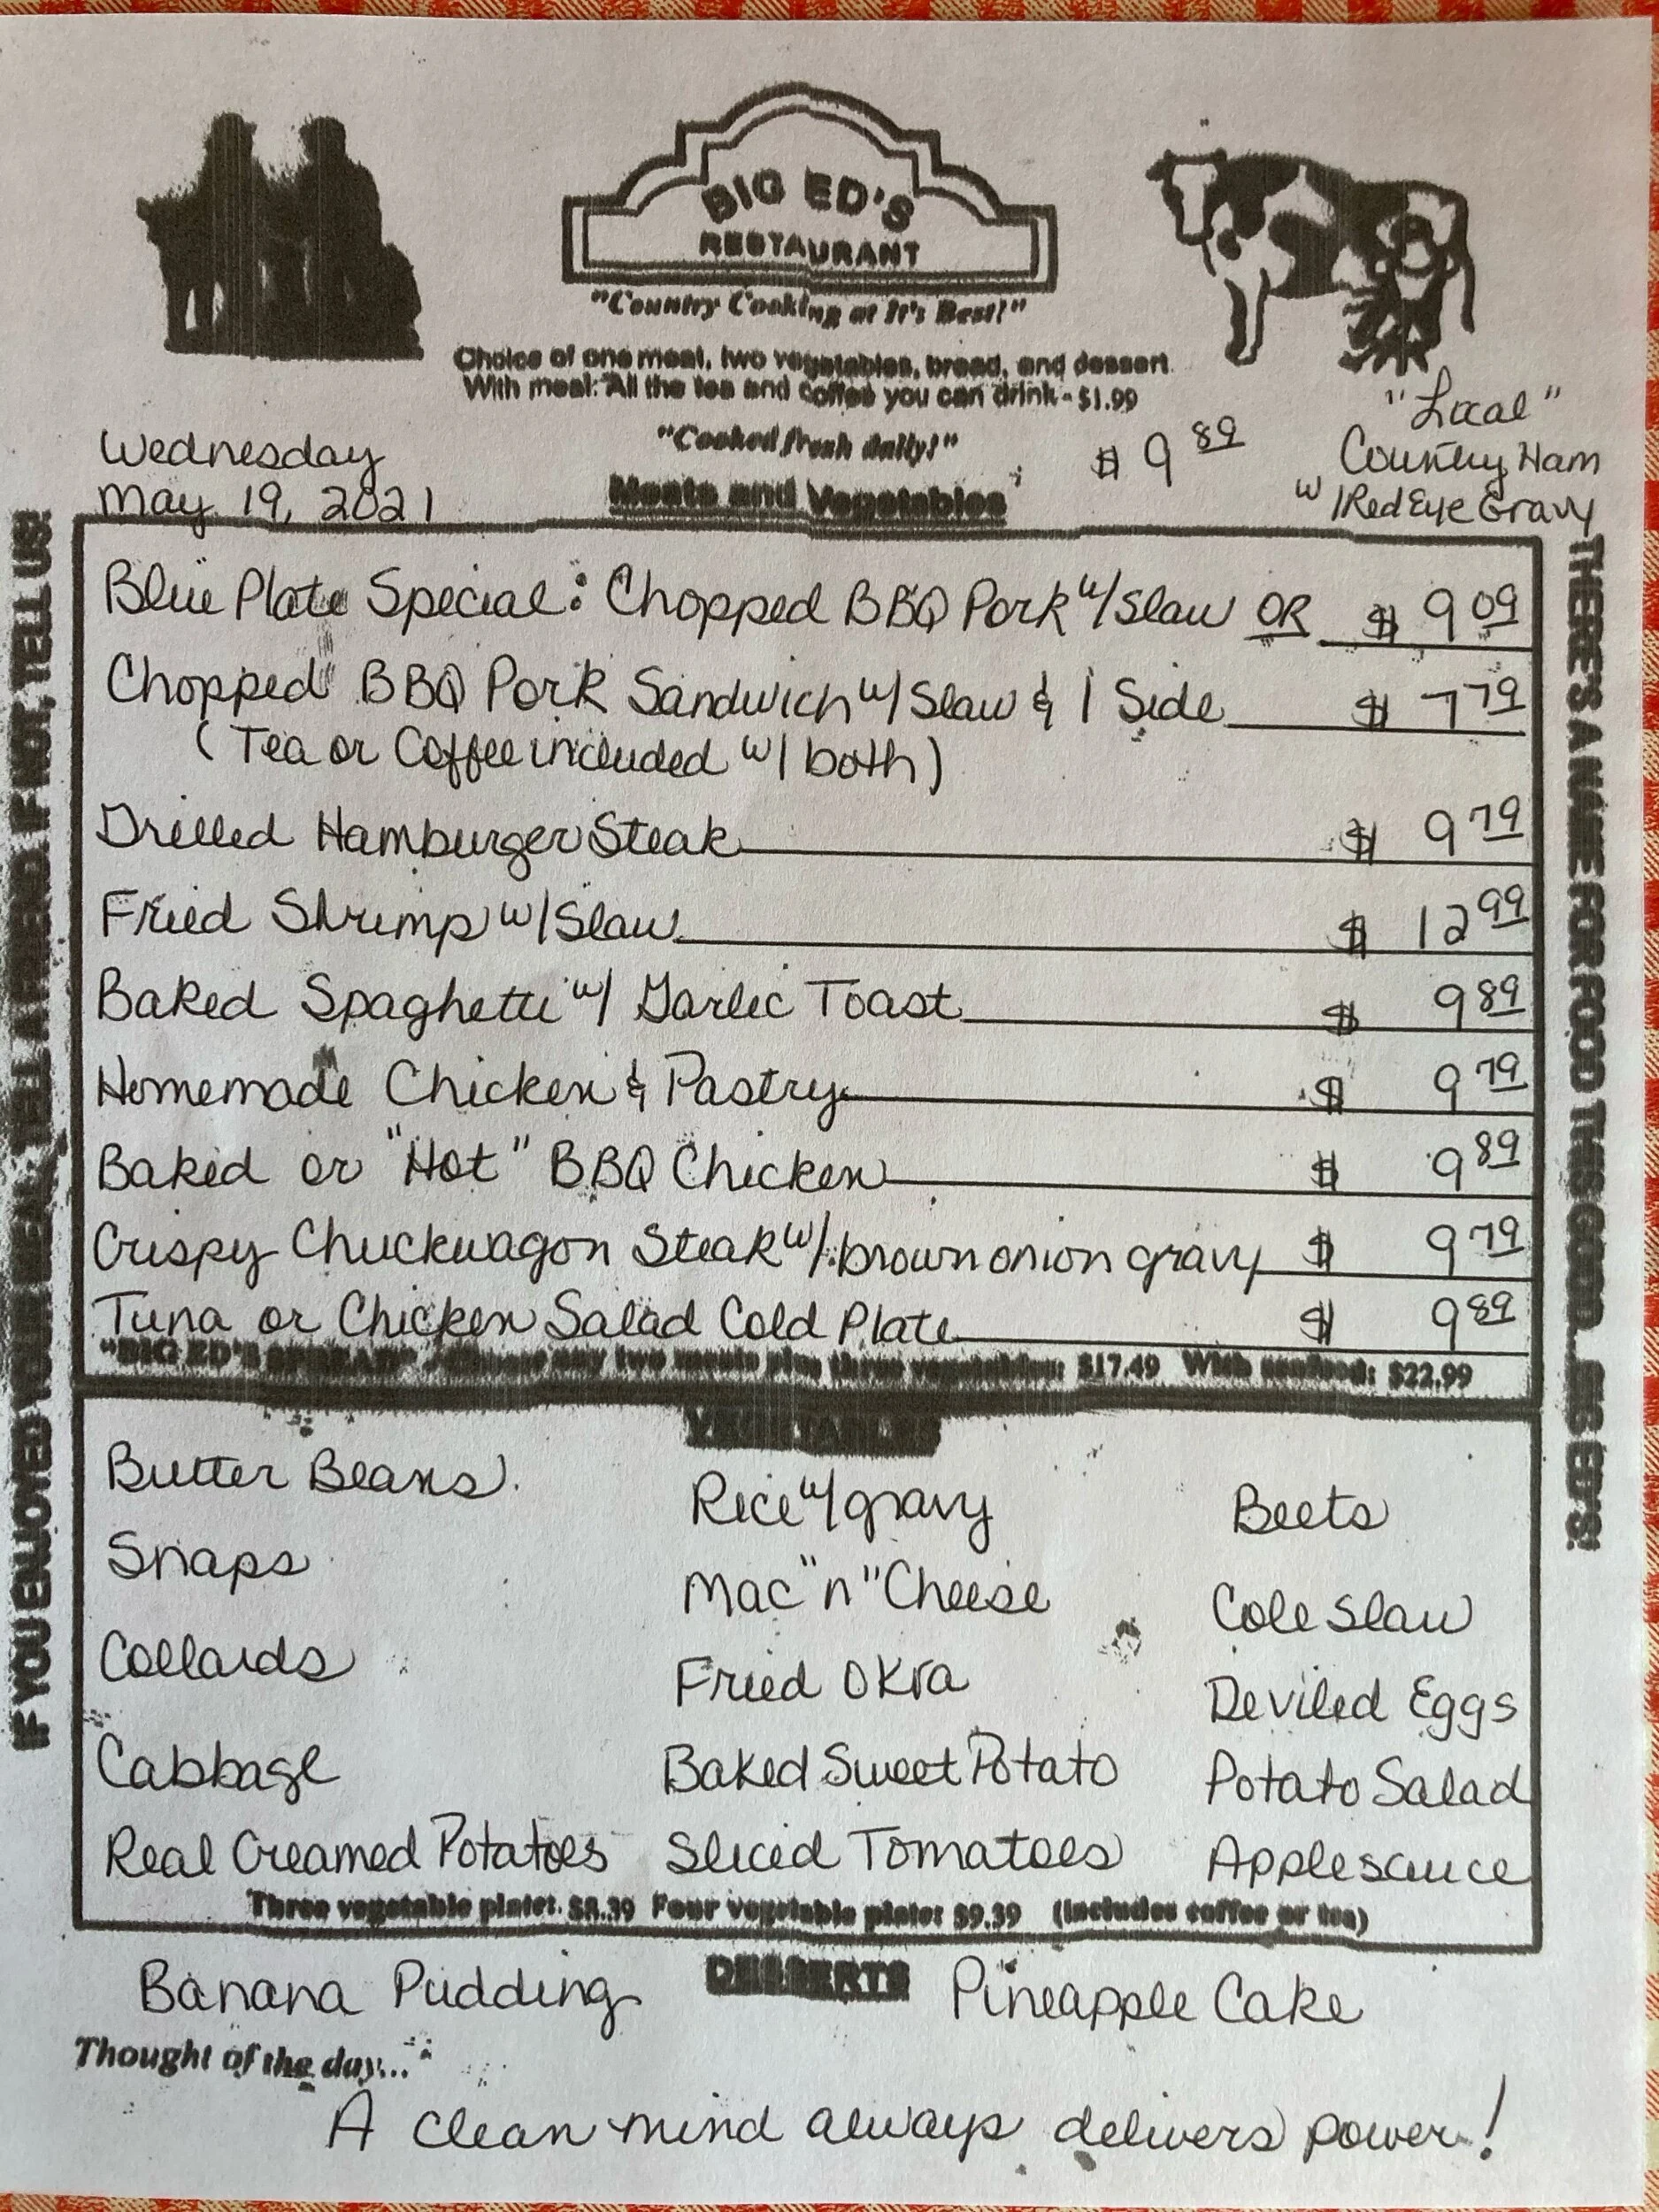 BIG ED'S
RESTAURANT
"Country Cooking at It's Best!"
Choice of one meat, two vegetables, bread, and dessert
With meal: All the tea and coffee you can drink - $1.99
"Cooked fresh daily!"
Wednesday
May 19, 2021
Meats and Vegetables
$ 9 89
"Local"
Country Ham
w/Red Eye Gravy
Blue Plate Special: Chopped BBQ Pork w/ Slaw OR $ 9 09
Chopped BBQ Pork Sandwich w/ Slaw & 1 Side $ 7 79
(Tea or Coffee included w/ both)
Grilled Hamburger Steak $ 9 79
Fried Shrimp w/ Slaw $ 12 99
Baked Spaghetti w/ Garlic Toast $ 9 89
Homemade Chicken & Pastry $ 9 79
Baked or "Hot" BBQ Chicken $ 9 89
Crispy Chuckwagon Steak w/ brown onion gravy $ 9 79
Tuna or Chicken Salad Cold Plate $ 9 89
"BIG ED'S SPREAD" - Choose any two meats plus three vegetables: $17.49 With seafood: $22.99
VEGETABLES
Butter Beans
Snaps
Collards
Cabbage
Real Creamed Potatoes
Rice w/ gravy
Mac "n" Cheese
Fried Okra
Baked Sweet Potato
Sliced Tomatoes
Beets
Cole Slaw
Deviled Eggs
Potato Salad
Applesauce
Three vegetable plate: $8.39 Four vegetable plate: $9.39 (Includes coffee or tea)
DESSERTS
Banana Pudding
Pineapple Cake
Thought of the day...
A clean mind always delivers power!
IF YOU ENJOYED YOUR MEAL, TELL A FRIEND. IF NOT, TELL US!
THERE'S A NAME FOR FOOD THIS GOOD... BIG ED'S!